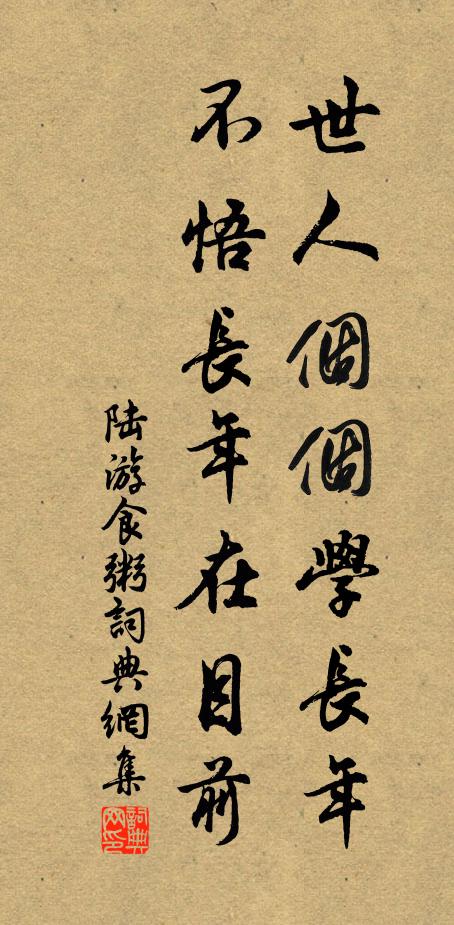 世人個個學長年
不悟長年在目前
陆游食粥詞典網集
詞典網印